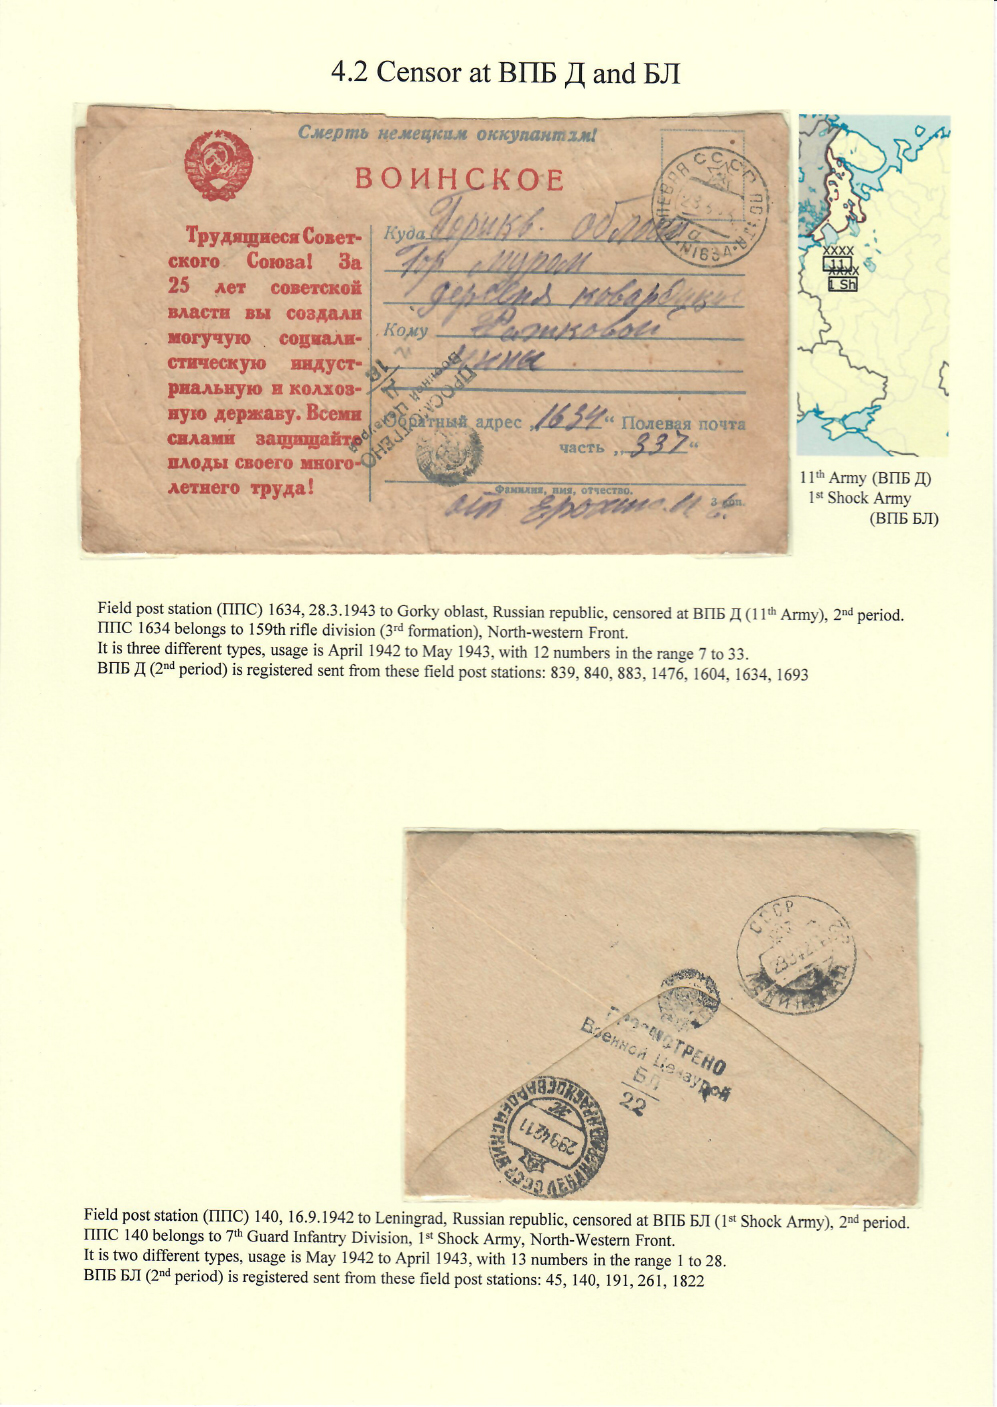 4.2 Censor at ВПБ Д and БЛ
Смерть немецким оккупантам!
ВОИНСКОЕ
Трудящиеся Совет-
ского Союза! За
25 лет советской
власти вы создали
могучую социали-
стическую индуст-
риальную и колхоз-
ную державу. Всеми
силами защищайте
плоды своего много-
летнего труда!
Куда Горькв. область
Гор Муром
деревня
Кому
Обратный адрес „1634“ Полевая почта
часть „337“
Фамилия, имя, отчество.
от
3 коп.
ПРОСМОТРЕНО
Военной Цензурой
Д
16
СССР
N1634
XXXX
11
XXXX
1 Sh
11th Army (ВПБ Д)
1st Shock Army
(ВПБ БЛ)
Field post station (ППС) 1634, 28.3.1943 to Gorky oblast, Russian republic, censored at ВПБ Д (11th Army), 2nd period.
ППС 1634 belongs to 159th rifle division (3rd formation), North-western Front.
It is three different types, usage is April 1942 to May 1943, with 12 numbers in the range 7 to 33.
ВПБ Д (2nd period) is registered sent from these field post stations: 839, 840, 883, 1476, 1604, 1634, 1693
СССР
ПРОСМОТРЕНО
Военной Цензурой
БЛ
22
2994211
Field post station (ППС) 140, 16.9.1942 to Leningrad, Russian republic, censored at ВПБ БЛ (1st Shock Army), 2nd period.
ППС 140 belongs to 7th Guard Infantry Division, 1st Shock Army, North-Western Front.
It is two different types, usage is May 1942 to April 1943, with 13 numbers in the range 1 to 28.
ВПБ БЛ (2nd period) is registered sent from these field post stations: 45, 140, 191, 261, 1822